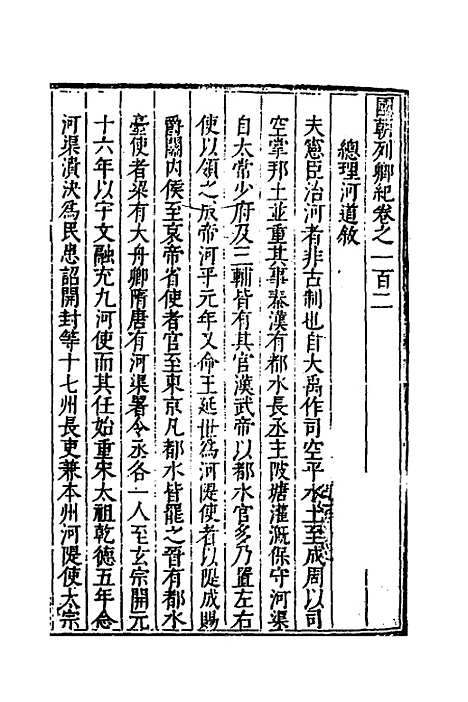 國朝列卿紀卷之一百二
總理河道敘
夫憲臣治河者非古制也自大禹作司空平水土至成周以司
空掌邦土並重其事秦漢有都水長丞主陂塘灌溉保守河渠
自太常少府及三輔皆有其官漢武帝以都水官多乃置左右
使以領之成帝河平元年又命王延世為河隄使者以隄成賜
爵關內侯至哀帝省使者官至東京凡都水皆罷之晉有都水
臺使者梁有大舟卿隋唐有河渠署令丞各一人至玄宗開元
十六年以宇文融充九河使而其任始重宋太祖乾德五年念
河渠潰決為民患詔開封等十七州長吏兼本州河隄使太宗